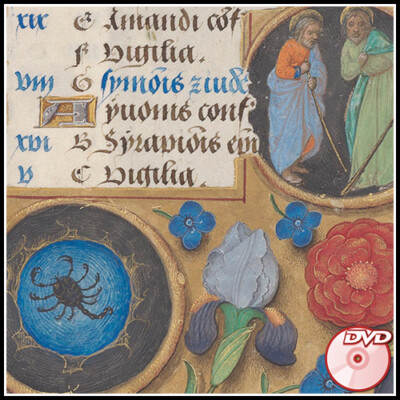 xix E Amandi cōf
F Vigilia.
viii G symōis z iude
A yuonis conf
xvi B Syrapiōis
v C Vigilia.
DVD